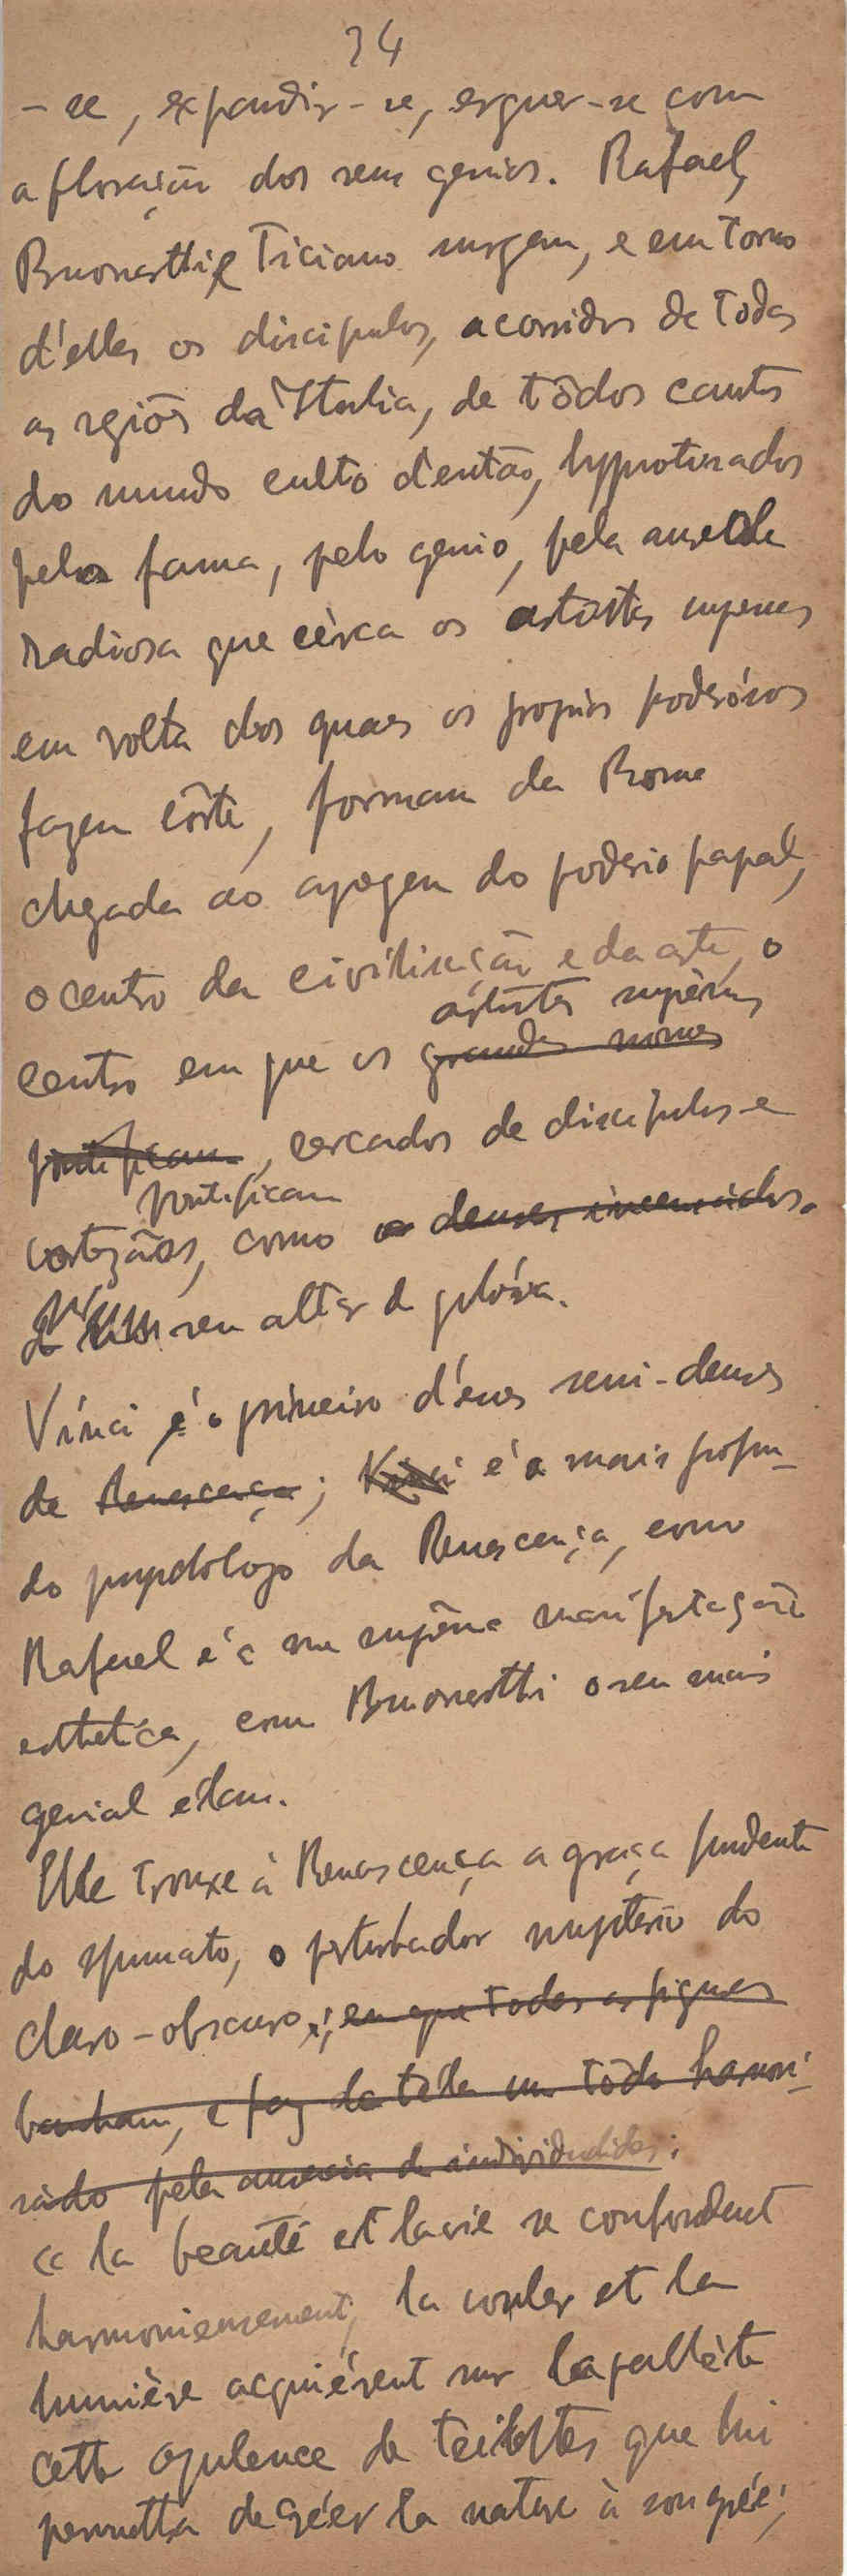 34
-se, expandir-se, erguer-se com
a floração dos seus genios. Rafael,
Buonarotti e Ticiano surgem, e em torno
d'elles os discipulos, acorridos de todas
as regiões da Italia, de todos cantos
do mundo culto d'então, hypnotisados
pela fama, pelo genio, pela aureola
radiosa que cérca os artistas supremos
em volta dos quaes os proprios poderósos
fazem côrte, formam da Roma
chegada ao apogeu do poderio papal,
o centro da civilisação e da arte, o
artistas suprêmos
centro em que os grandes nomes
pontificam, cercados de discipulos e
pontificam
cortezãos, como deuses incensados.
seu altar de glória.
Vinci é o primeiro d'esses semi-deuses
da Renascença; Vinci é o mais profun-
do psycólogo da Renascença, como
Rafael é a sua suprêma manifestação
esthetica, como Buonarotti o seu mais
genial élan.
Elle trouxe á Renascença a graça fundente
do sfumato, o perturbador mysterio do
claro-obscuro; em que todas as figuras
banham, e faz da téla um todo harmoni-
sado pela ausencia de individualidades:
« la beauté et la vie se confondent
harmonieusement, la couler et la
lumière acquiérent sur la pallète
cette opulence de teintes que lui
permetta de créer la nature à son grée;